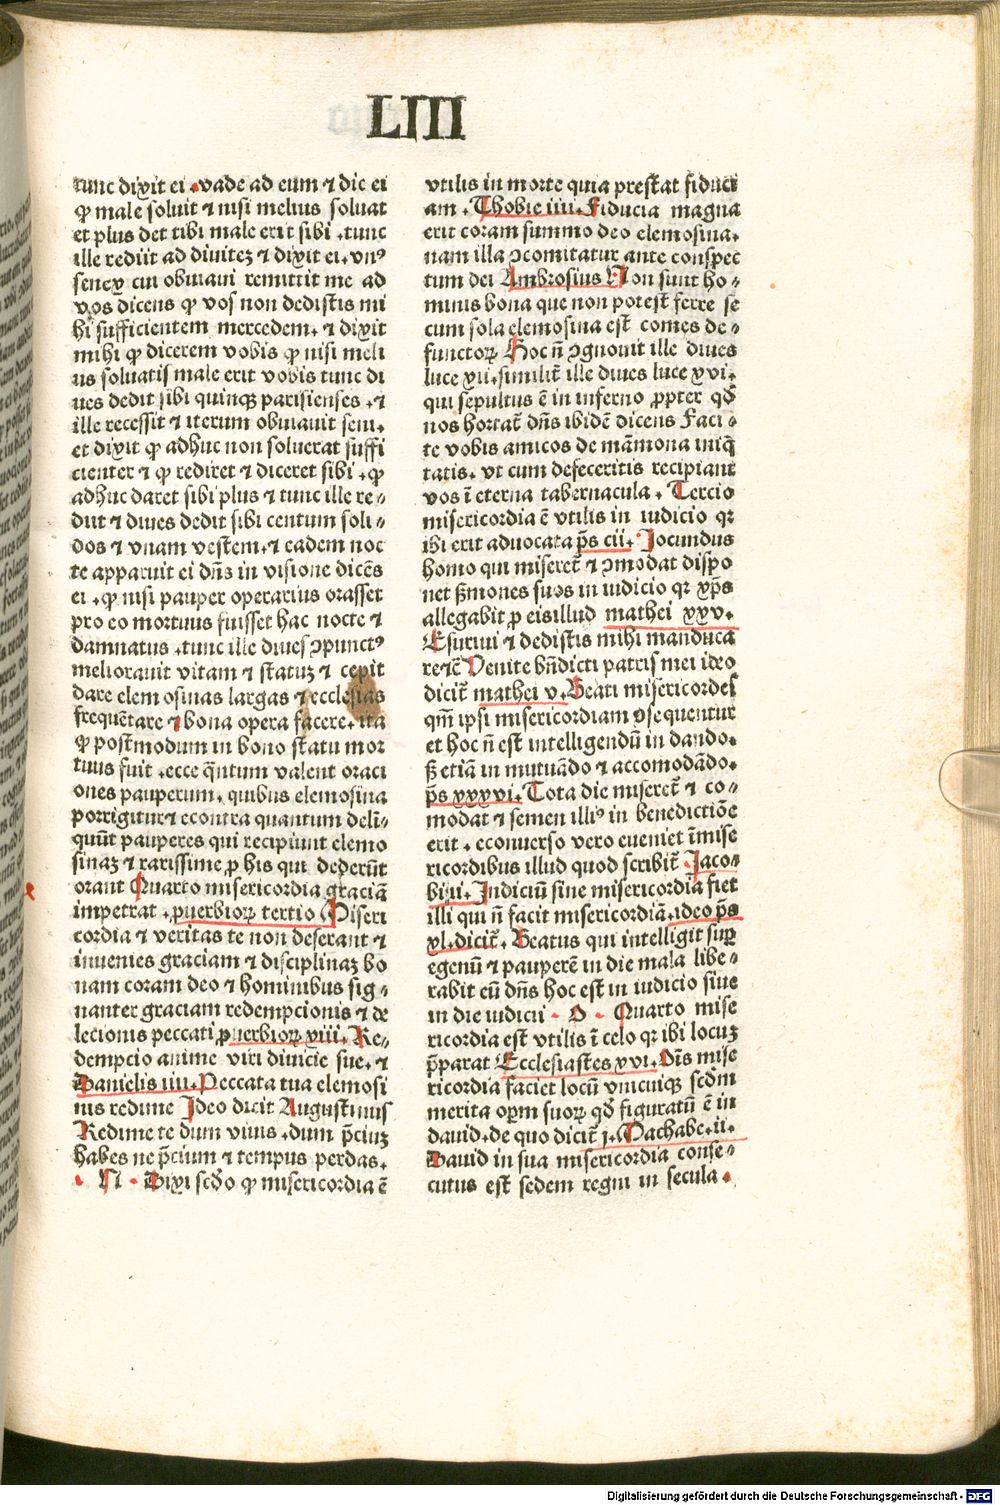 LIII
tunc dixit ei .vade ad eum ⁊ dic ei
ꝙ male soluit ⁊ nisi melius soluat
et plus det tibi male erit sibi .tunc
ille rediit ad diuitēꝫ ⁊ dixit ei.vnꝰ
senex cui obuiaui remittit me ad
vos dicens ꝙ vos non dedistis mi
hi sufficientem mercedem. ⁊ dixit
mihi ꝙ dicerem vobis ꝙ nisi meli
us soluatis male erit vobis tunc di
ues dedit sibi quinqꝫ parisienses .⁊
ille recessit ⁊ iterum obuiauit seni.
et dixit ꝙ adhuc non soluerat suffi
cienter ⁊ ꝙ rediret ⁊ diceret sibi .ꝙ
adhuc daret sibi plus ⁊ tunc ille re⸗
diit ⁊ diues dedit sibi centum soli⸗
dos ⁊ vnam vestem.⁊ eadem noc
te apparuit ei dn̄s in visione dicēs
ei .ꝙ nisi pauper operarius orasset
pro eo mortuus fuisset hac nocte ⁊
damnatus .tunc ille diues ꝯpunctꝰ
meliorauit vitam ⁊ statuꝫ ⁊ cepit
dare elemosinas largas ⁊ ecclesias
frequētare ⁊ bona opera facere. ita
ꝙ postmodum in bono statu mor
tuus fuit .ecce q̄ntum valent oraci
ones pauperum. quibus elemosina
porrigitur⁊ econtra quantum deli⸗
quūt pauperes qui recipiunt elemo
sinaꝫ ⁊ rarissime ꝓ his qui dederūt
orant Quarto misericordia graciā
impetrat .ꝓuerbioꝝ tertio Miseri
cordia ⁊ veritas te non deserant ⁊
inuenies graciam ⁊ disciplinaꝫ bo
nam coram deo ⁊ hominibus sig⸗
nanter graciam redempcionis ⁊ de
lecionis peccati ꝓuerbioꝝ xiii. Re⸗
dempcio anime viri diuicie sue. ⁊
Danielis iiii. Peccata tua elemosi
nis redime Ideo dicit Augustinus
Redime te dum viuis .dum p̄ciuꝫ
habes ne p̄cium ⁊ tempus perdas.
. N . Dixi scd̄o ꝙ misericordia ē
vtilis in morte quia prestat fiduci
am . Thobie iiii. Fiducia magna
erit coram summo deo elemosina.
nam illa ꝯcomitatur ante conspec
tum dei Ambrosius Non sunt ho⸗
minis bona que non potest ferre se
cum sola elemosina est comes de⸗
functoꝝ Hoc n̄ ꝯgnouit ille diues
luce xii.similit̄ ille diues luce xvi.
qui sepultus ē in inferno ꝓpter qd̄
nos hortat̄ dn̄s ibidē dicens Faci⸗
te vobis amicos de māmona iniq̄
tatis. vt cum defeceritis recipiant
vos ī eterna tabernacula . Tercio
misericordia ē vtilis in iudicio qꝛ
ibi erit aduocata p̄s cii. Iocundus
homo qui miseret̄ ⁊ ꝯmodat dispo
net ẜmones suos in iudicio qꝛ xp̄s
allegabit ꝓ eis illud mathei xxv.
Esuriui ⁊ dedistis mihi manduca
re⁊c̄ Venite bn̄dicti patris mei ideo
dicit̄ mathei v. Beati misericordes
qm̄ ipsi misericordiam ꝯsequentur
et hoc n̄ est intelligendū in dando.
ẜ etiā in mutuādo ⁊ accomodādo.
p̄s xxxvi. Tota die miseret̄ ⁊ co⸗
modat ⁊ semen illiꝰ in benedictiōe
erit . econuerso vero eueniet īmise
ricordibus illud quod scribit̄ .Iaco⸗
bi ii. Iudiciū sine misericordia fiet
illi qui n̄ facit misericordiā.ideo p̄s
xl.dicit̄. Beatus qui intelligit suꝑ
egenū ⁊ pauperē in die mala libe⸗
rabit eū dn̄s hoc est in iudicio siue
in die iudicii . O . Quarto mise
ricordia est vtilis ī celo qꝛ ibi locuꝫ
p̄parat Ecclesiastes xvi. Oīs mise
ricordia faciet locū vnicuiqꝫ scd̄m
merita oꝑm suoꝝ qd̄ figuratū ē in
dauid.de quo dicit̄ j. Machabe.ii.
Dauid in sua misericordia conse⸗
cutus est sedem regni in secula .
Digitalisierung gefördert durch die Deutsche Forschungsgemeinschaft - DFG